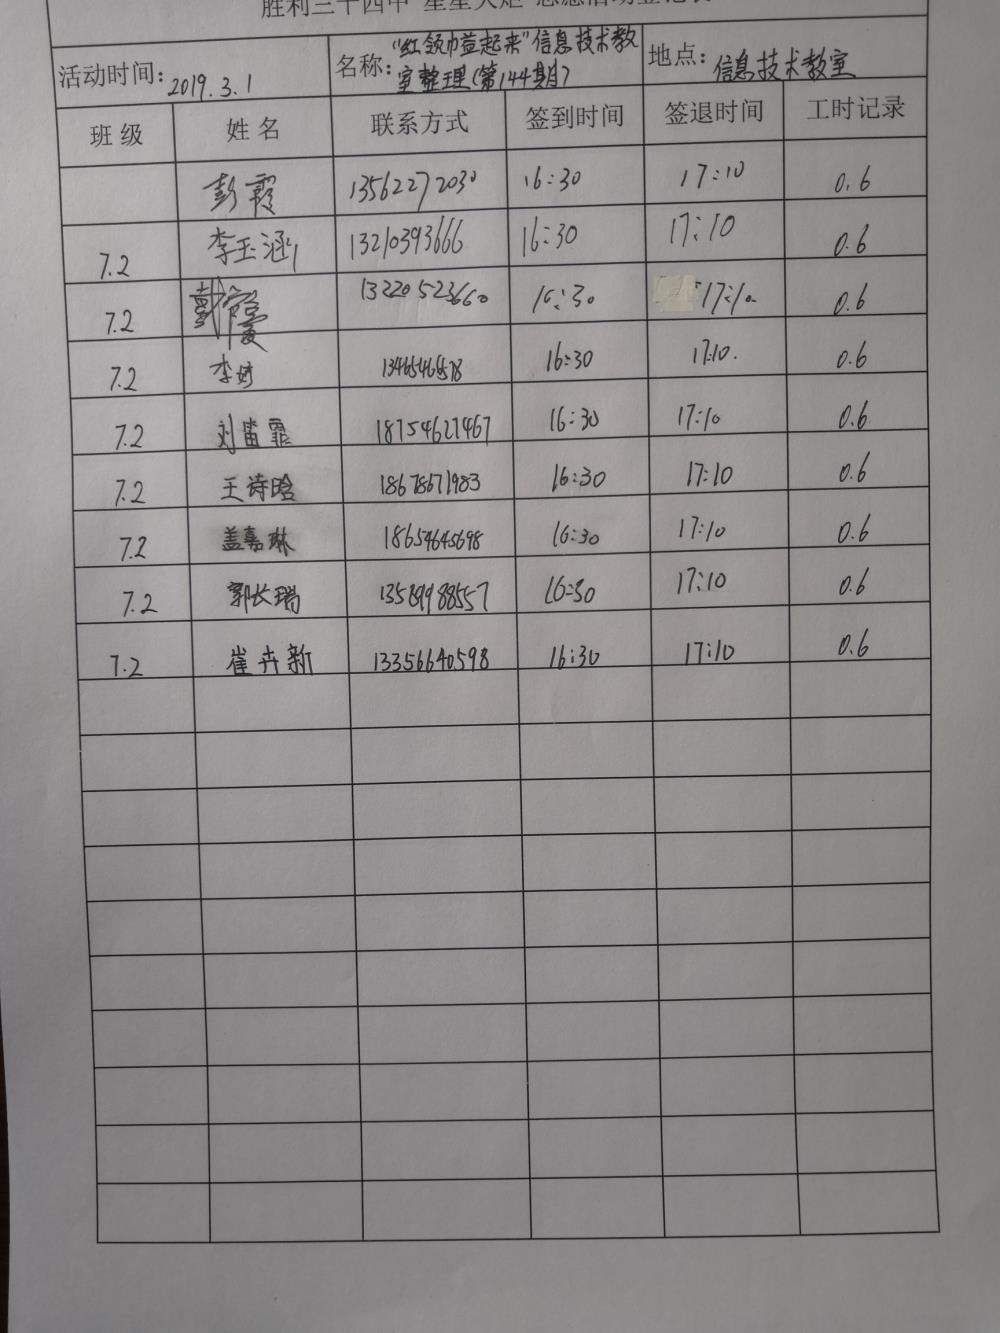 胜利三十四中"星星火炬"志愿活动登记表
活动时间: 2019.3.1 名称: "红领巾益起来"信息技术教室整理(第144期) 地点: 信息技术教室
班级 姓名 联系方式 签到时间 签退时间 工时记录
彭霞 13562272030 16:30 17:10 0.6
7.2 李玉涵 13210393666 16:30 17:10 0.6
7.2 戴 13220523660 16:30 17:10 0.6
7.2 李 16:30 17:10. 0.6
7.2 刘 霏 18754627467 16:30 17:10 0.6
7.2 王诗晗 18678671983 16:30 17:10 0.6
7.2 盖嘉琳 18654645698 16:30 17:10 0.6
7.2 郭长瑞 13589988557 16:30 17:10 0.6
7.2 崔卉新 13356640598 16:30 17:10 0.6